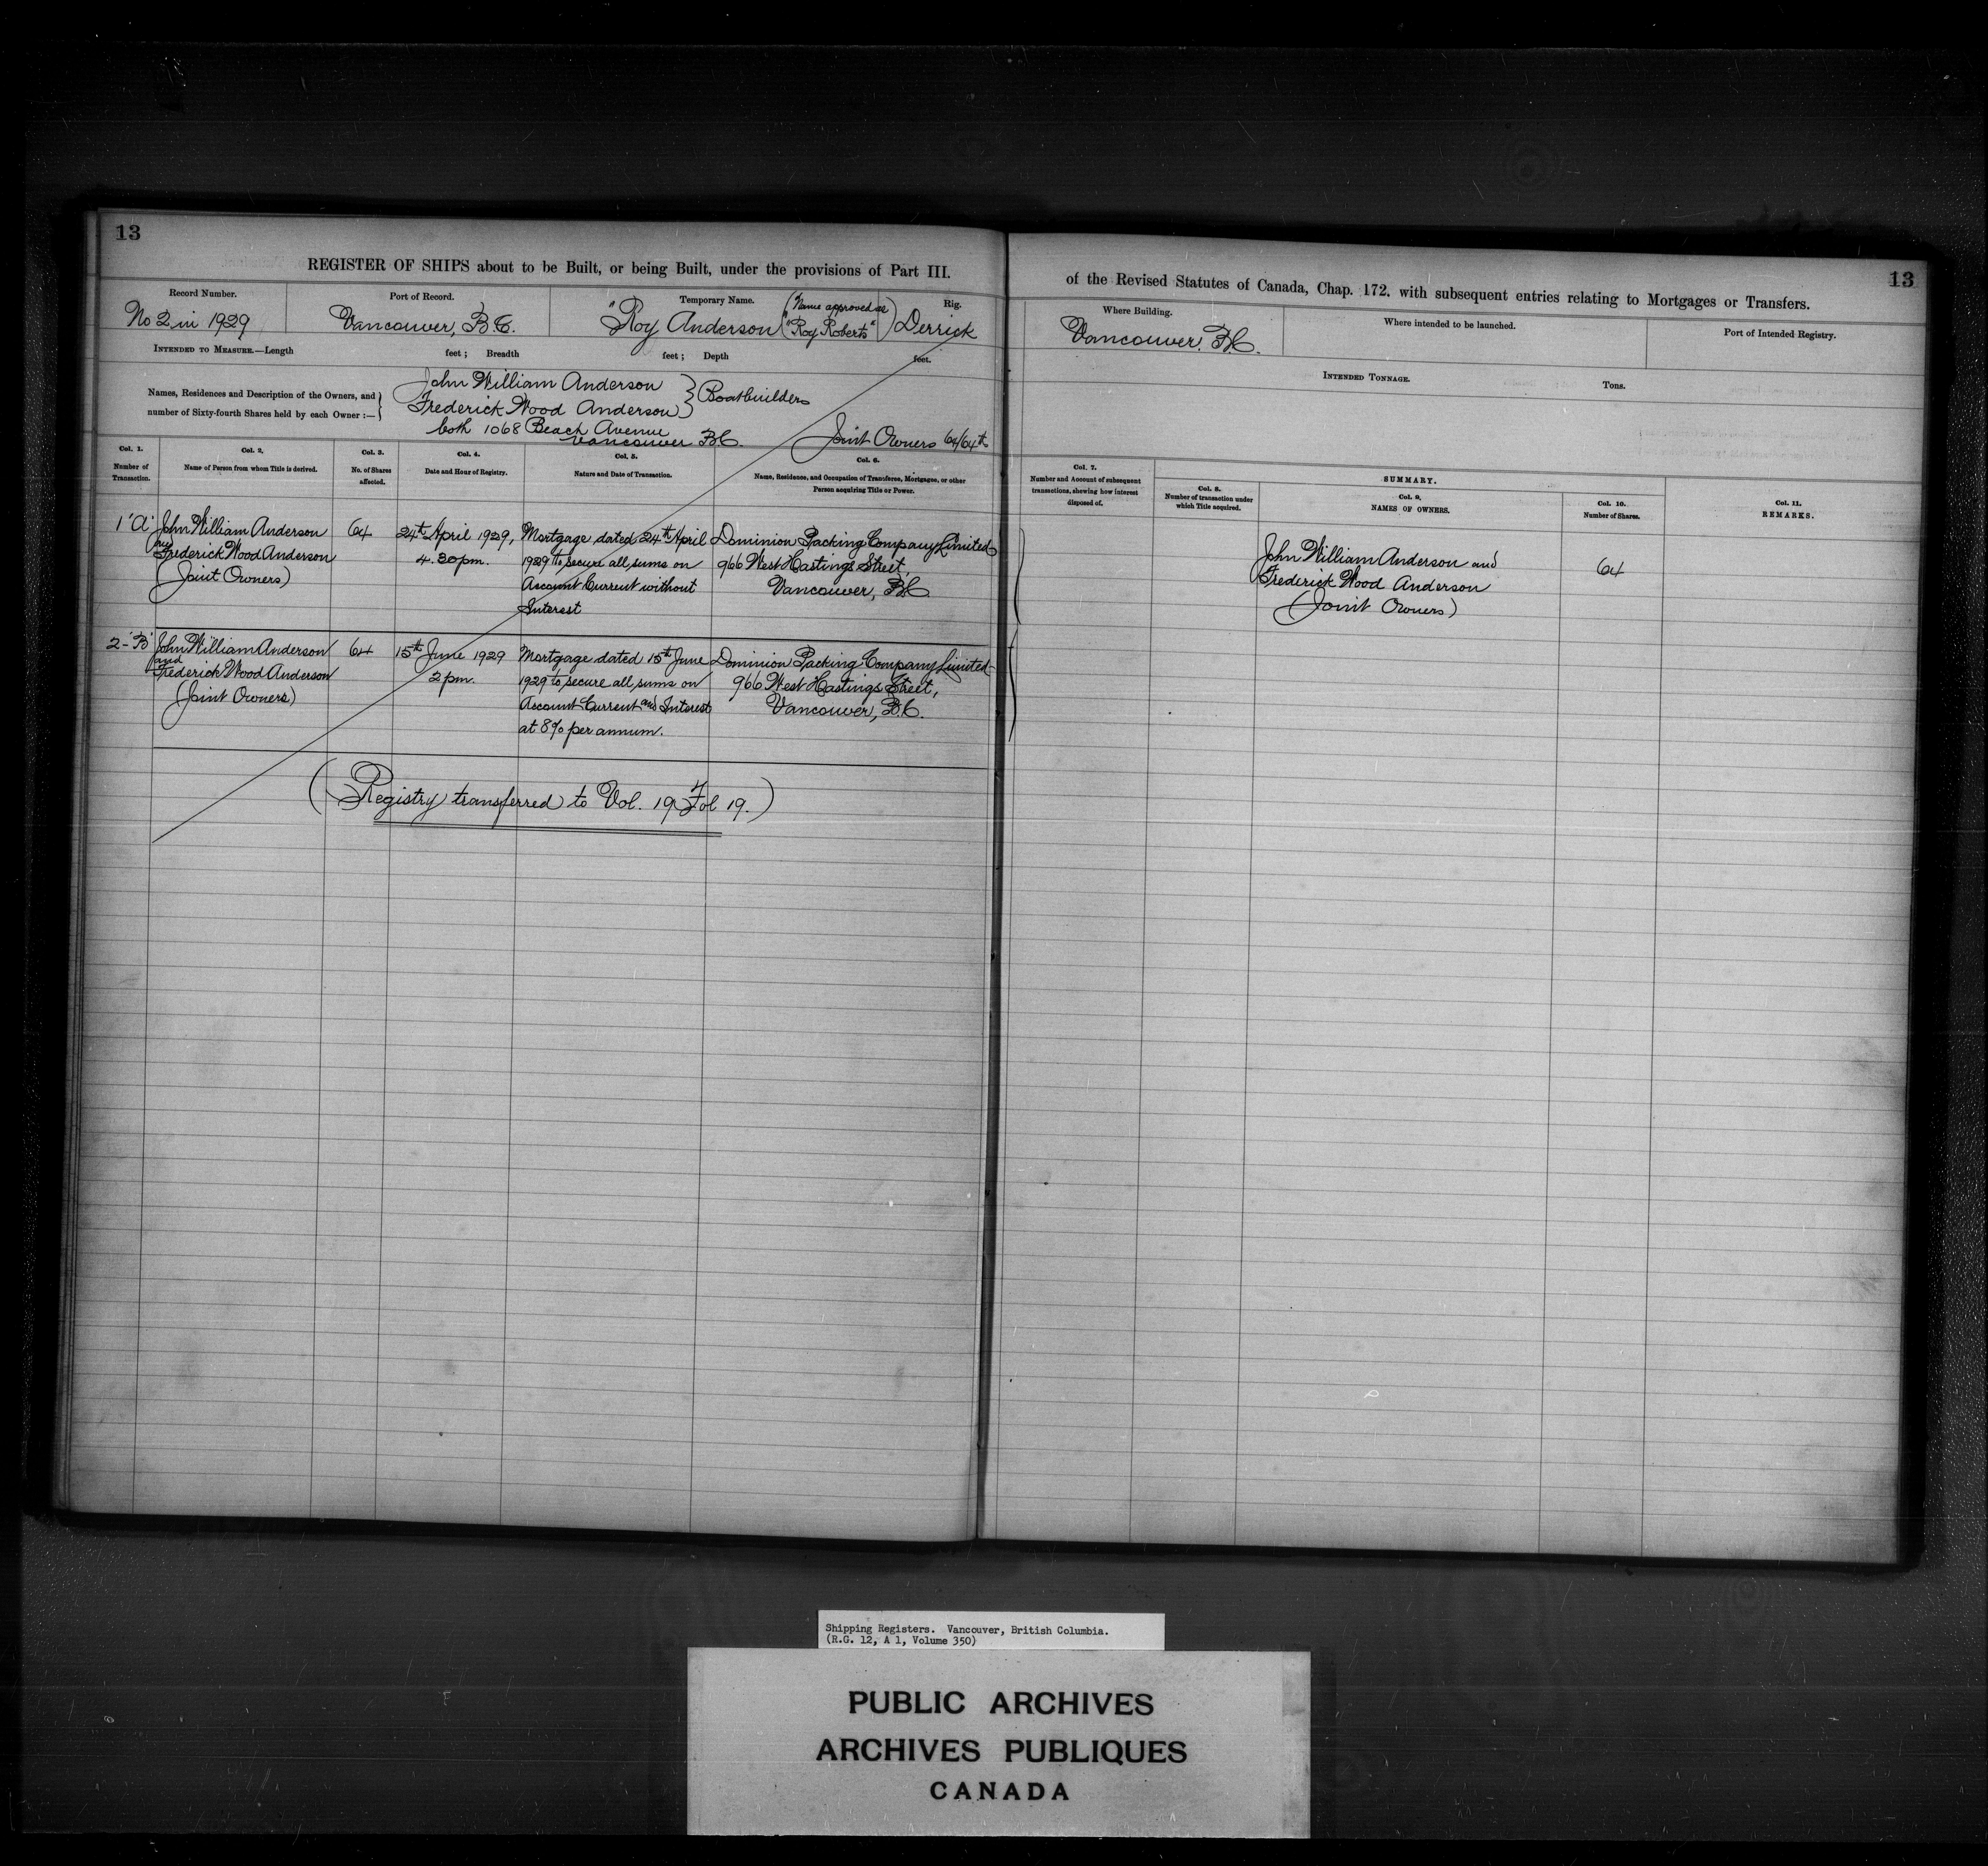 13
REGISTER OF SHIPS about to be Built, or being Built, under the provisions of Part III.
Record Number.
No 2 in 1929
Port of Record.
Vancouver, B.C.
Temporary Name.
"Roy Anderson
(Name approved as
"Roy Roberts")
Rig.
Derrick
INTENDED TO MEASURE.—Length feet; Breadth feet; Depth feet.
Names, Residences and Description of the Owners, and
number of Sixty-fourth Shares held by each Owner :—
John William Anderson
Frederick Wood Anderson
} Boatbuilders
both 1068 Beach Avenue
Vancouver B.C.
Joint Owners 64/64ths
Col. 1.
Number of
Transaction.
Col. 2.
Name of Person from whom Title is derived.
Col. 3.
No. of Shares
affected.
Col. 4.
Date and Hour of Registry.
Col. 5.
Nature and Date of Transaction.
Col. 6.
Name, Residence, and Occupation of Transferee, Mortgagee, or other
Person acquiring Title or Power.
1 'A'
John William Anderson
and
Frederick Wood Anderson
(Joint Owners)
64
24th April 1929,
4.30 pm.
Mortgage dated 24th April
1929 to secure all sums on
Account Current without
Interest
Dominion Packing Company Limited
966 West Hastings Street,
Vancouver, B.C.
2-'B'
John William Anderson
and
Frederick Wood Anderson
(Joint Owners)
64
15th June 1929
2 pm.
Mortgage dated 15th June
1929 to secure all sums on
Account Current and Interest
at 8% per annum.
Dominion Packing Company Limited
966 West Hastings Street,
Vancouver, B.C.
(Registry transferred to Vol. 19 Fol 19.)
13
of the Revised Statutes of Canada, Chap. 172. with subsequent entries relating to Mortgages or Transfers.
Where Building.
Vancouver. B.C.
Where intended to be launched.
Port of Intended Registry.
INTENDED TONNAGE.
Tons.
Col. 7.
Number and Account of subsequent
transactions, shewing how interest
disposed of.
SUMMARY.
Col. 8.
Number of transaction under
which Title acquired.
Col. 9.
NAMES OF OWNERS.
Col. 10.
Number of Shares.
Col. 11.
REMARKS.
John William Anderson and
Frederick Wood Anderson
(Joint Owners)
64
Shipping Registers. Vancouver, British Columbia.
(R.G. 12, A 1, Volume 350)
PUBLIC ARCHIVES
ARCHIVES PUBLIQUES
CANADA